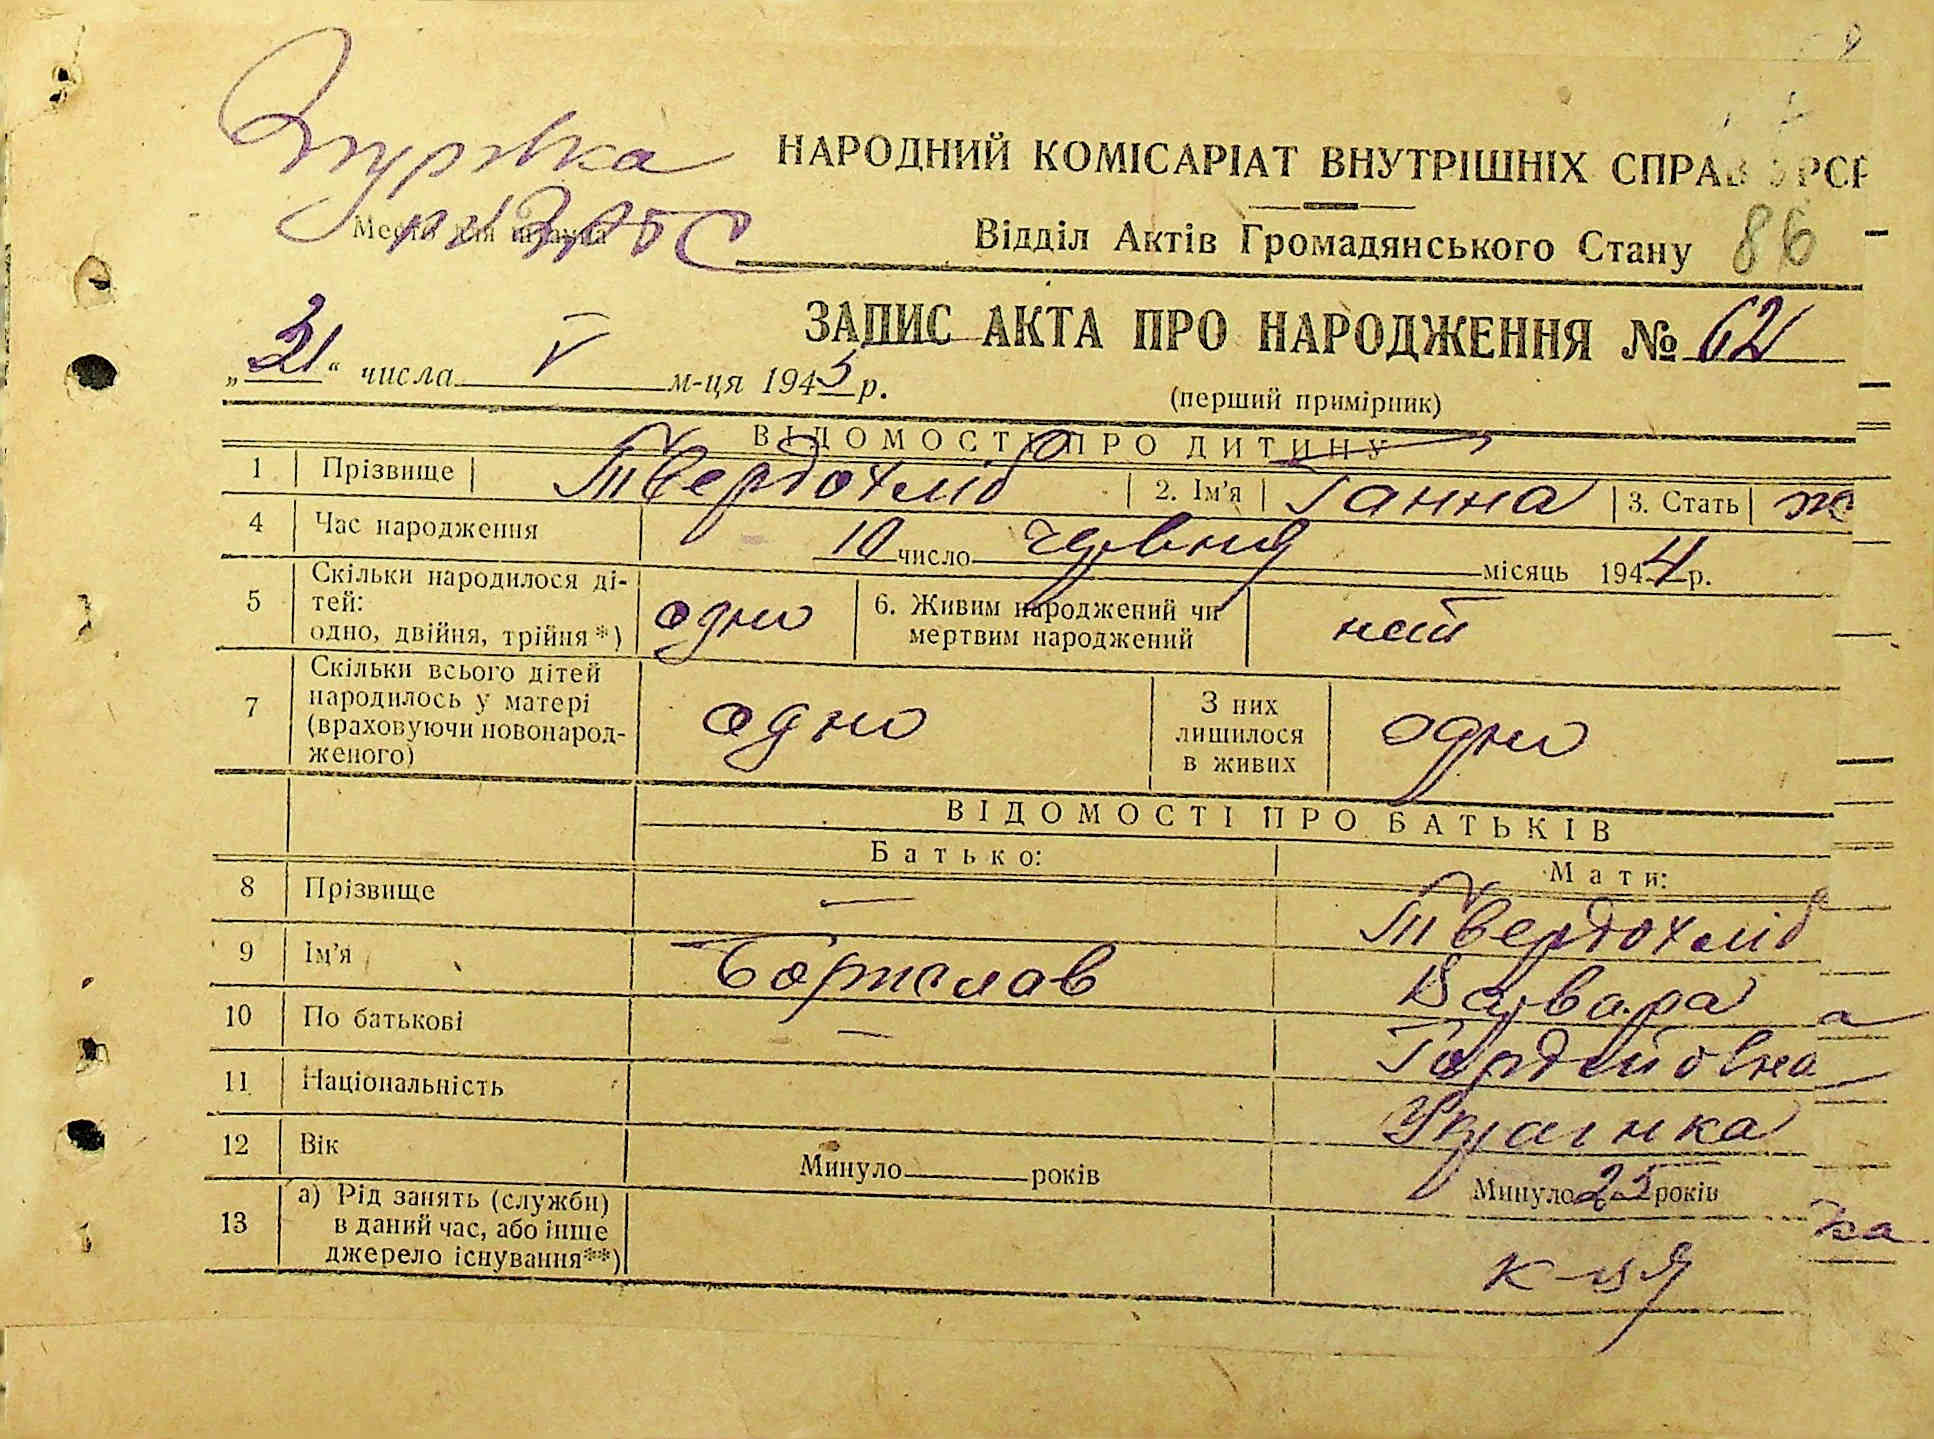 Згурівка
Место для штампа
рч ЗАГС
НАРОДНИЙ КОМІСАРІАТ ВНУТРІШНІХ СПРАВ УРСР
Відділ Актів Громадянського Стану 86
ЗАПИС АКТА ПРО НАРОДЖЕННЯ № 62
„31“ числа V м-ця 1945 р.
(перший примірник)
ВІДОМОСТІ ПРО ДИТИНУ
1 Прізвище Твердохліб 2. Ім'я Ганна 3. Стать ж
4 Час народження 10 число червня місяць 1944 р.
5 Скільки народилося ді-
тей:
одно, двійня, трійня*) одно
6. Живим народжений чи
мертвим народжений
7 Скільки всього дітей
народилось у матері
(враховуючи новонарод-
женого) одно
З них
лишилося
в живих одно
ВІДОМОСТІ ПРО БАТЬКІВ
Батько: Мати:
8 Прізвище — Твердохліб
9 Ім'я Варвара
10 По батькові — Гордеївна
11 Національність Українка
12 Вік Минуло років Минуло 25 років
13 а) Рід занять (служби)
в даний час, або інше
джерело існування**) к-ця